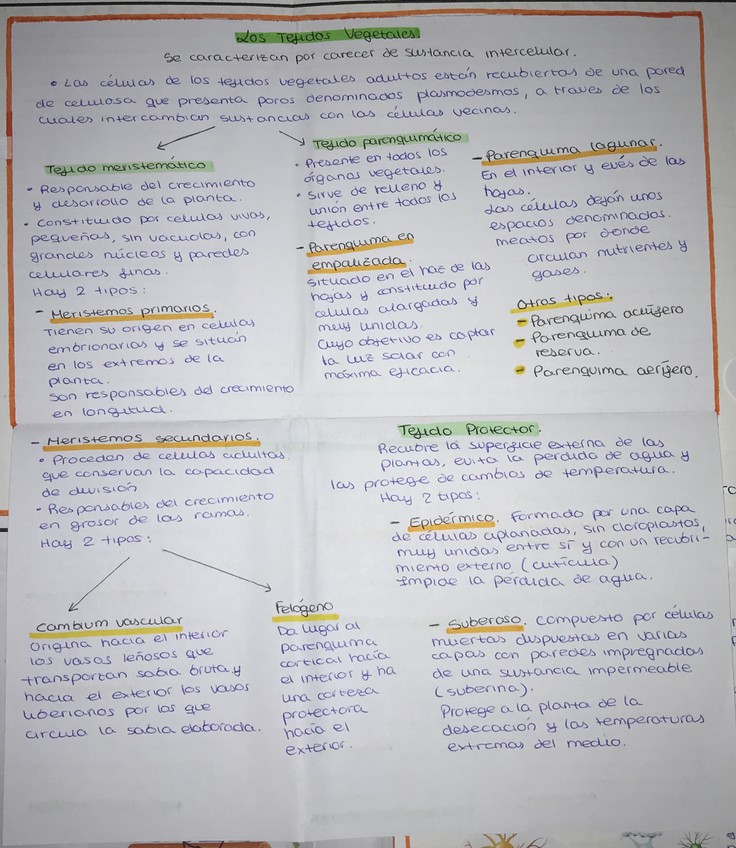 Los Tejidos Vegetales
Se caracterizan por carecer de sustancia intercelular.
• Las células de los tejidos vegetales adultos están recubiertas de una pared
de celulosa que presenta poros denominados plasmodesmos, a traves de los
cuales intercambian sustancias con las células vecinas.
Tejido meristemático
• Responsable del crecimiento
y desarrollo de la planta.
• Constituido por celulas vivas,
pequeñas, sin vacuolas, con
grandes núcleos y paredes
celulares finas.
Hay 2 tipos:
- Meristemos primarios.
Tienen su origen en celulas
embrionarias y se sitúan
en los extremos de la
planta.
Son responsables del crecimiento
en longitud.
Tejido parenquimático
• Presente en todos los
órganos vegetales.
• Sirve de relleno y
unión entre todos los
tejidos.
- Parenquima en
empalizada.
Situado en el haz de las
hojas y constituido por
celulas alargadas y
muy unidas.
Cuyo objetivo es captar
la luz solar con
máxima eficacia.
- Parenquima lagunar.
En el interior y evés de las
hojas.
Las células dejan unos
espacios denominados
meatos por donde
circulan nutrientes y
gases.
Otros tipos:
- Parenquima acuífero
- Parenquima de
reserva.
- Parenquima aerífero.
- Meristemos secundarios.
• Proceden de celulas adultas
que conservan la capacidad
de división
• Responsables del crecimiento
en grosor de las ramas.
Hay 2 tipos:
Cambium vascular
Origina hacia el interior
los vasos leñosos que
transportan sabia bruta y
hacia el exterior los vasos
liberianos por los que
circula la sabia elaborada.
Felógeno
Da lugar al
parenquima
cortical hacia
el interior y ha
una corteza
protectora
hacia el
exterior.
Tejido Protector.
Recubre la superficie externa de las
plantas, evita la perdida de agua y
las protege de cambios de temperatura.
Hay 2 tipos:
- Epidérmico. Formado por una capa
de células aplanadas, sin cloroplastos,
muy unidas entre sí y con un recubri-
miento externo (cutícula)
Impide la pérdida de agua.
- Suberoso. Compuesto por células
muertas dispuestas en varias
capas con paredes impregnadas
de una sustancia impermeable
(suberina).
Protege a la planta de la
desecación y las temperaturas
extremas del medio.